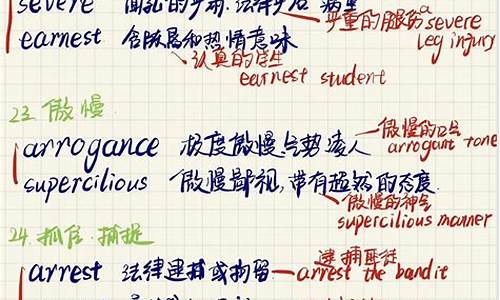 severe
严重的腿伤 a severe leg injury
earnest 含殷局和热情意味
认真的学生
earnest student
23. 傲慢
arrogance 极度傲慢,气势凌人
傲慢的口气
arrogant tone
supercilious 傲慢鄙视,带有超然的态度
傲慢的神气
supercilious manner
24. 抓住. 捕捉
arrest 法律逮捕或拘留
逮捕匪徒
arrest the bandit